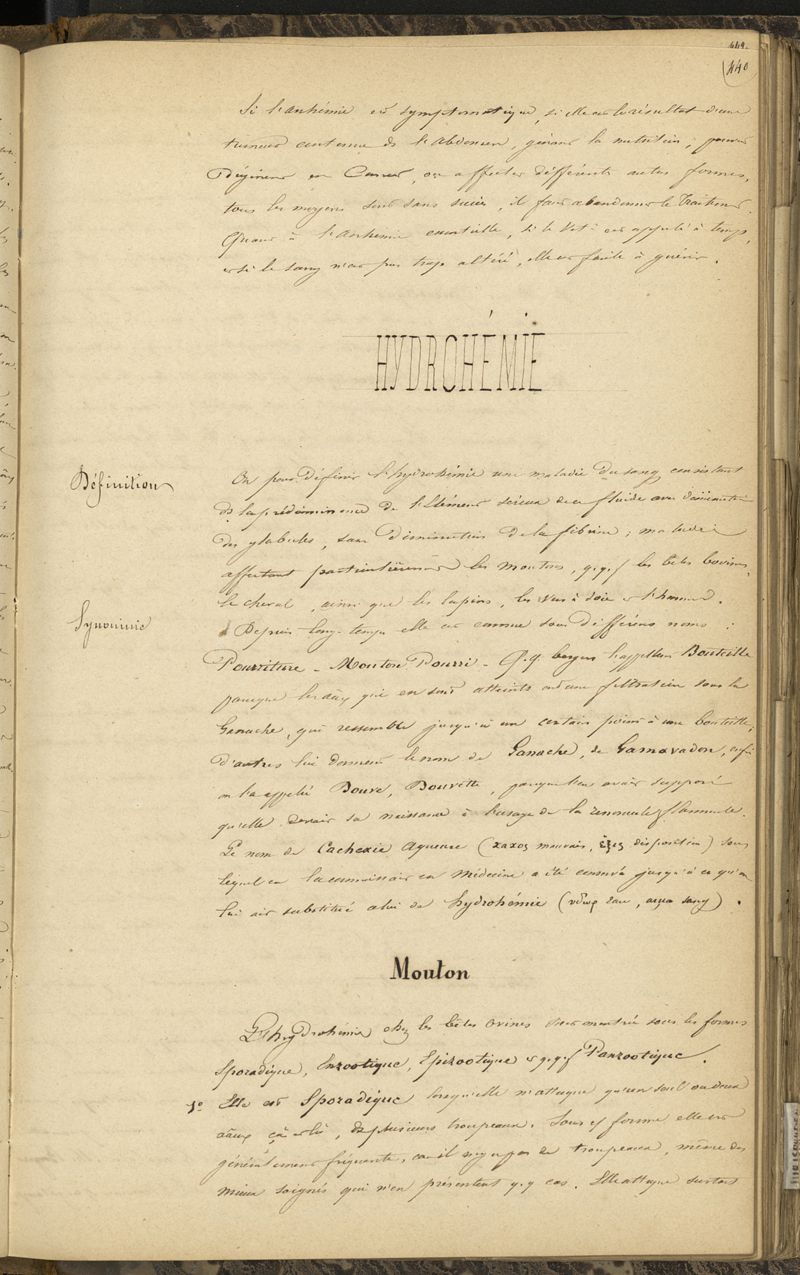 449
440
Si l'anhémie est symptomatique, si elle est le résultat d'une
tumeur contenue ds l'abdomen, gênant la nutrition, pouvant
Dégénérer en Cancer, ou affecter différentes autres formes,
tous les moyens sont sans succès, il faut abandonner le Traitement.
Quant à l'anhémie essentielle, si le Vétre est appelé à temps,
et si le sang n'est pas trop altéré, elle est facile à guérir.
HYDROHÉMIE
Définition
On peut Définir l'hydrohémie une maladie du sang consistant
ds la prédominence de l'Elément séreux de ce fluide avec diminution
des globules, sans Diminution de la fibrine ; maladie
affectant particulièrement les moutons, q.q.f les bêtes bovines,
le cheval, ainsi que les lapins, les vers à soie et l'homme.
Synonimie
Depuis long-temps elle est connue sous Différens noms :
Pourriture - Mouton Pourri - Q.q. bergers l'appellent Bouteille
parceque les aux qui en sont atteints ont une filtration sous la
Ganache, qui ressemble jusqu'à un certain point à une bouteille,
D'autres lui donnent le nom de Ganache, de Gamavadon, enfin
on l'a appelé Douve, Douvette, parqu'on avait supposé
qu'elle devait sa naissance à l'usage de la renoncule flammule.
Le nom de Cachexie aqueuse (χαχος mauvais, εξις disposition) sous
lequel on la connaissait en médecine a été conservé jusqu'à ce qu'on
lui ait substitué celui de hydrohémie (υδωρ eau, αιμα sang).
Mouton
L'hydrohémie chez les bêtes ovines s'est montrée sous les formes
Sporadique, Enzootique, Epizootique et q.q.f Panzootique.
1º Elle est Sporadique lorsqu'elle n'attaque qu'un seul ou deux
aux çà et là, ds plusieurs troupeaux. Sous cette forme elle est
généralement fréquente, car il n'y a pas de troupeaux, même des
mieux soignés qui n'en présentent q.q cas. Elle attaque surtout